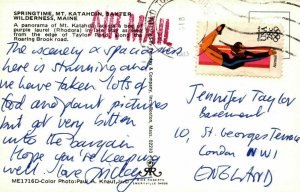 SPRINGTIME, MT. KATAHDIN, BAXTER
WILDERNESS, MAINE
A panorama of Mt. Katahdin
purple laurel (Rhodora)
from the edge of Taylor
Roaring Brook road.
AIR MAIL
USA
The scenery & spaciousness
here is stunning and
we have taken lots of
tod and plant pictures
but get very bitten
into the bargain
Hope you're keeping
well. love
Jennifer Taylor
Basement
10, St Georges Terrace
London NW1
ENGLAND
ME1716D-Color Photo: Paul A. Knaut